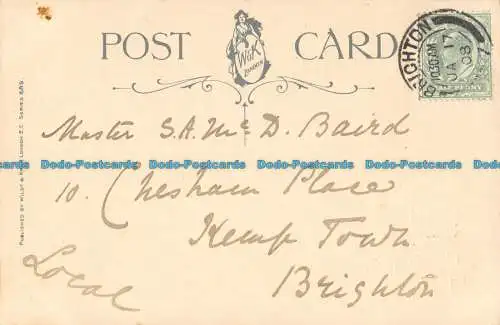 POST CARD
W&K
LONDON
BRIGHTON
10.30 AM
JA 17
08
HALFPENNY
PUBLISHED BY WILDT & KRAY, LONDON. E.C. SERIES 689
Master S.A. McD. Baird
Dodo-Postcards Dodo-Postcards Dodo-Postcards Dodo-Postcards Dodo-Postcards
10. Chesham Place
Kemp Town
Brighton
Local